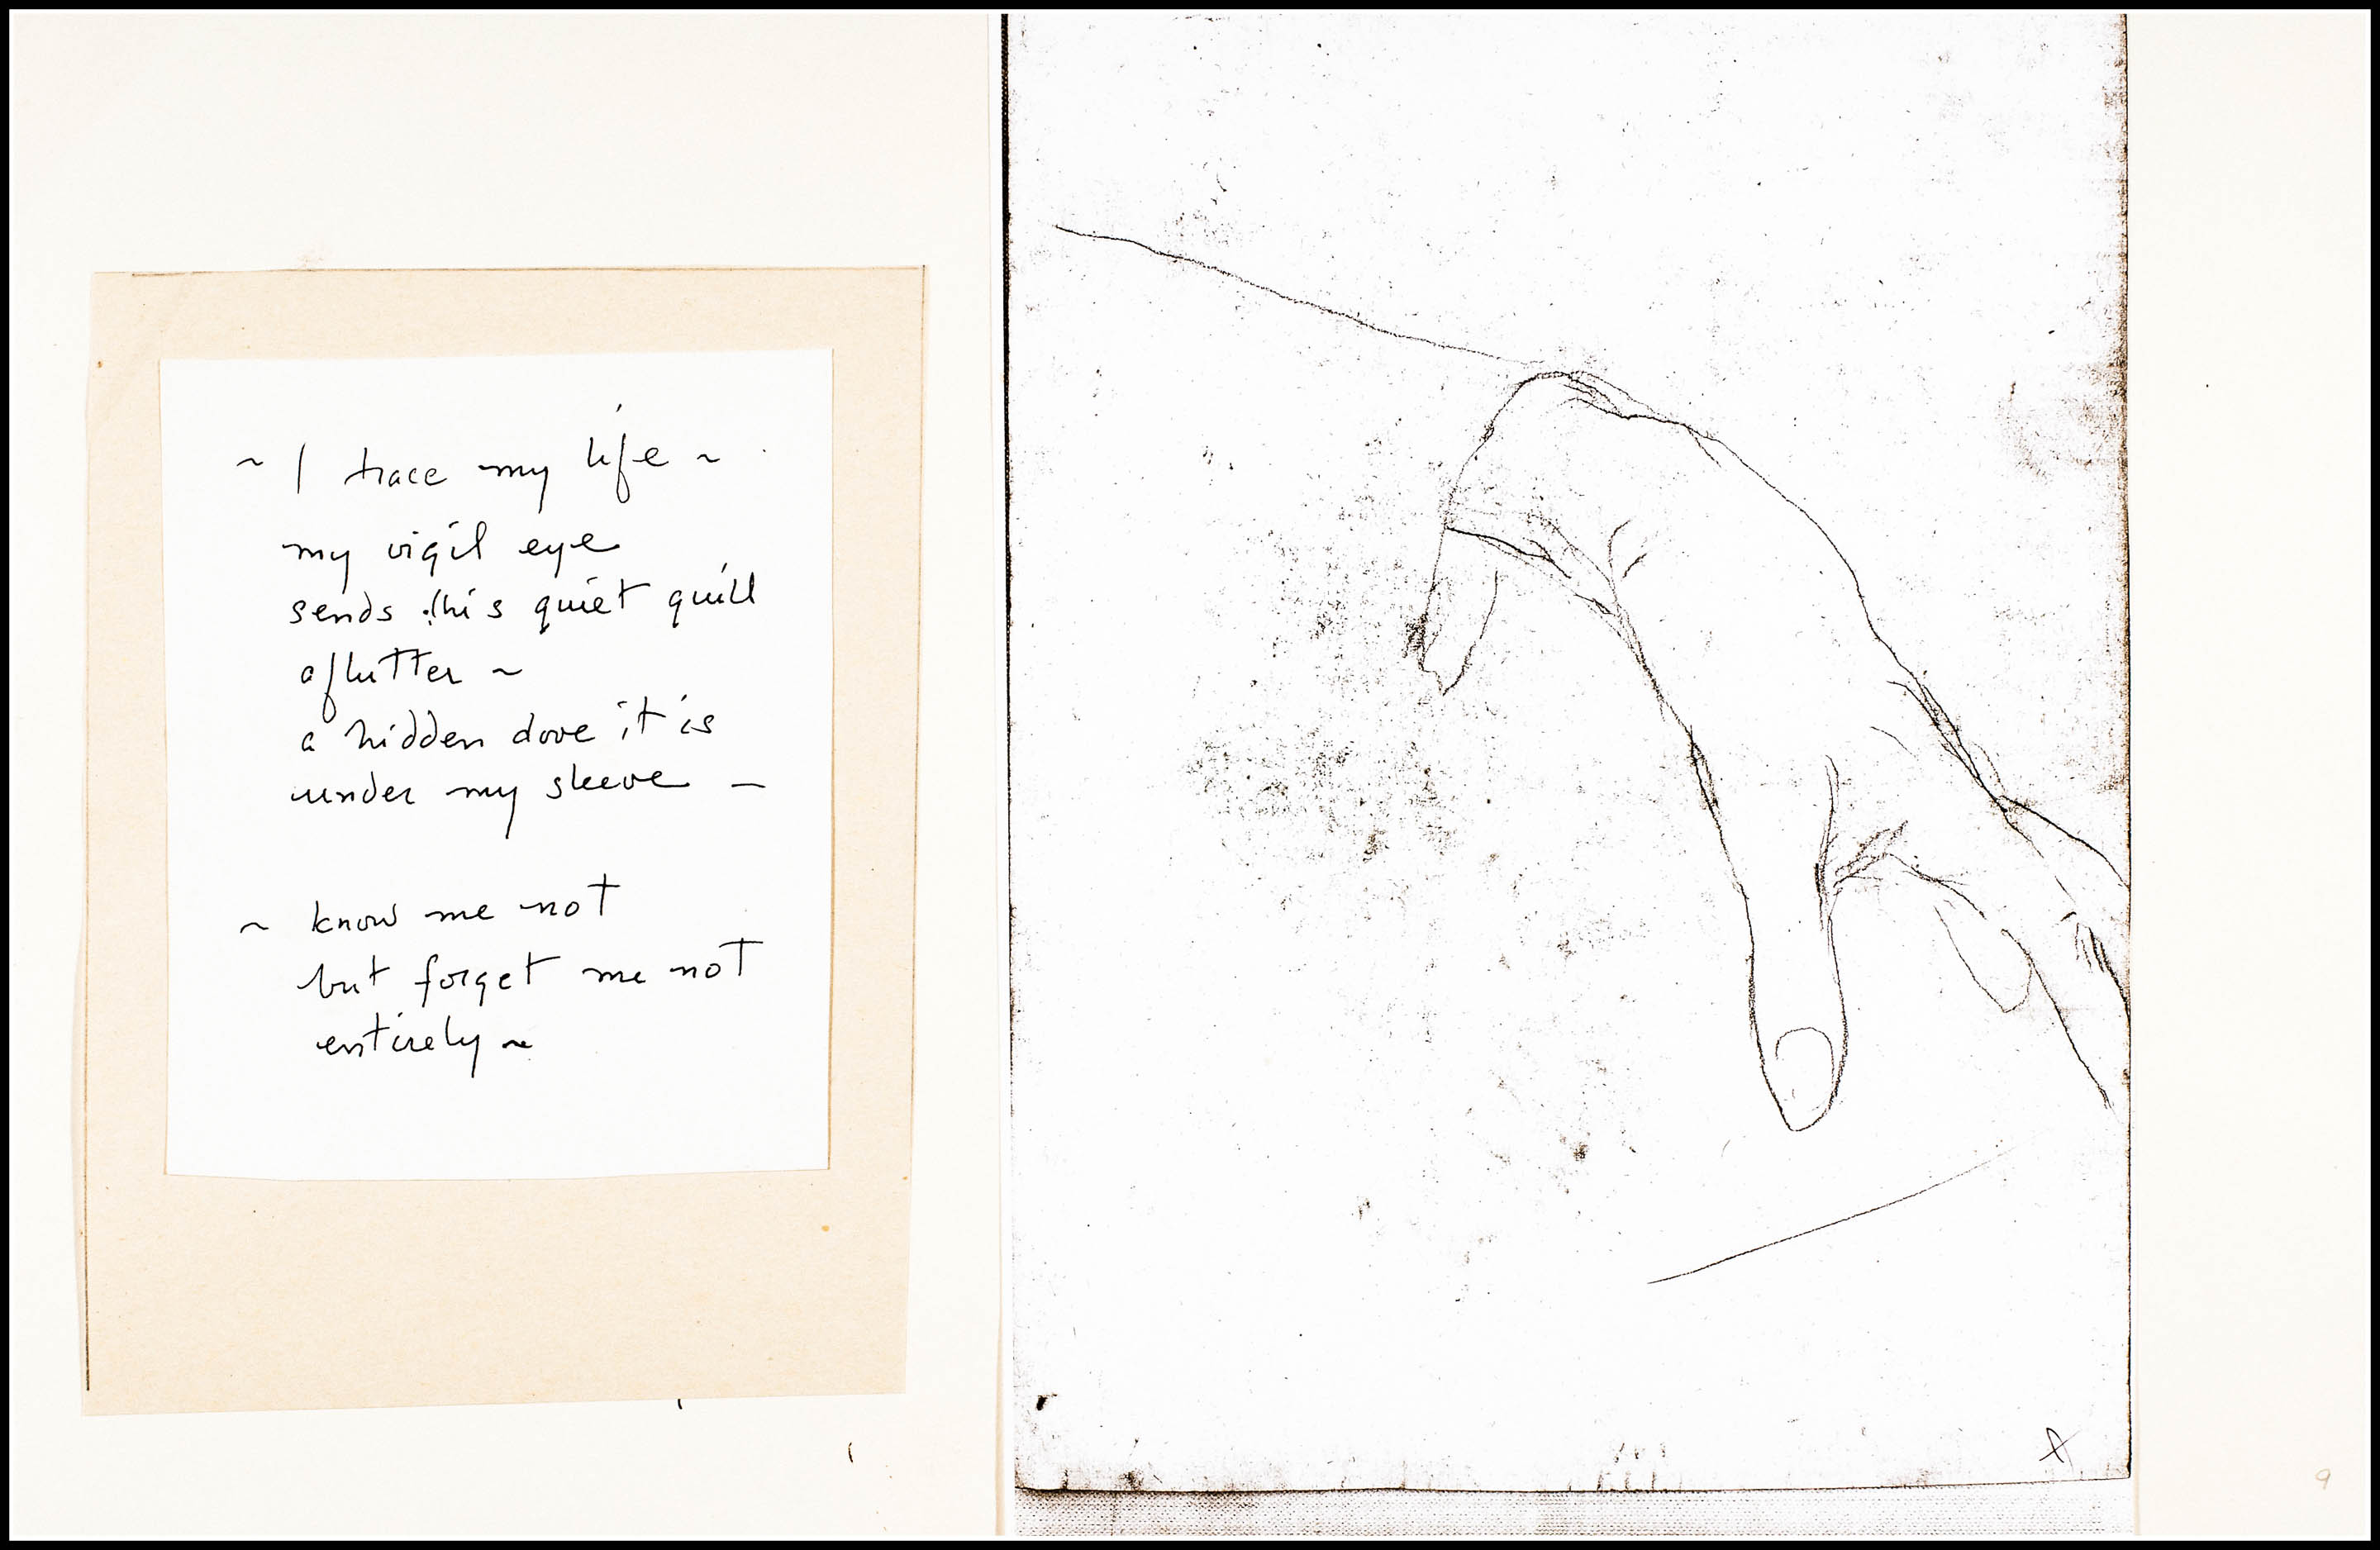 ~ I trace my life ~
my vigil eye
sends this quiet quill
aflutter ~
a hidden dove it is
under my sleeve —
~ know me not
but forget me not
entirely ~
9